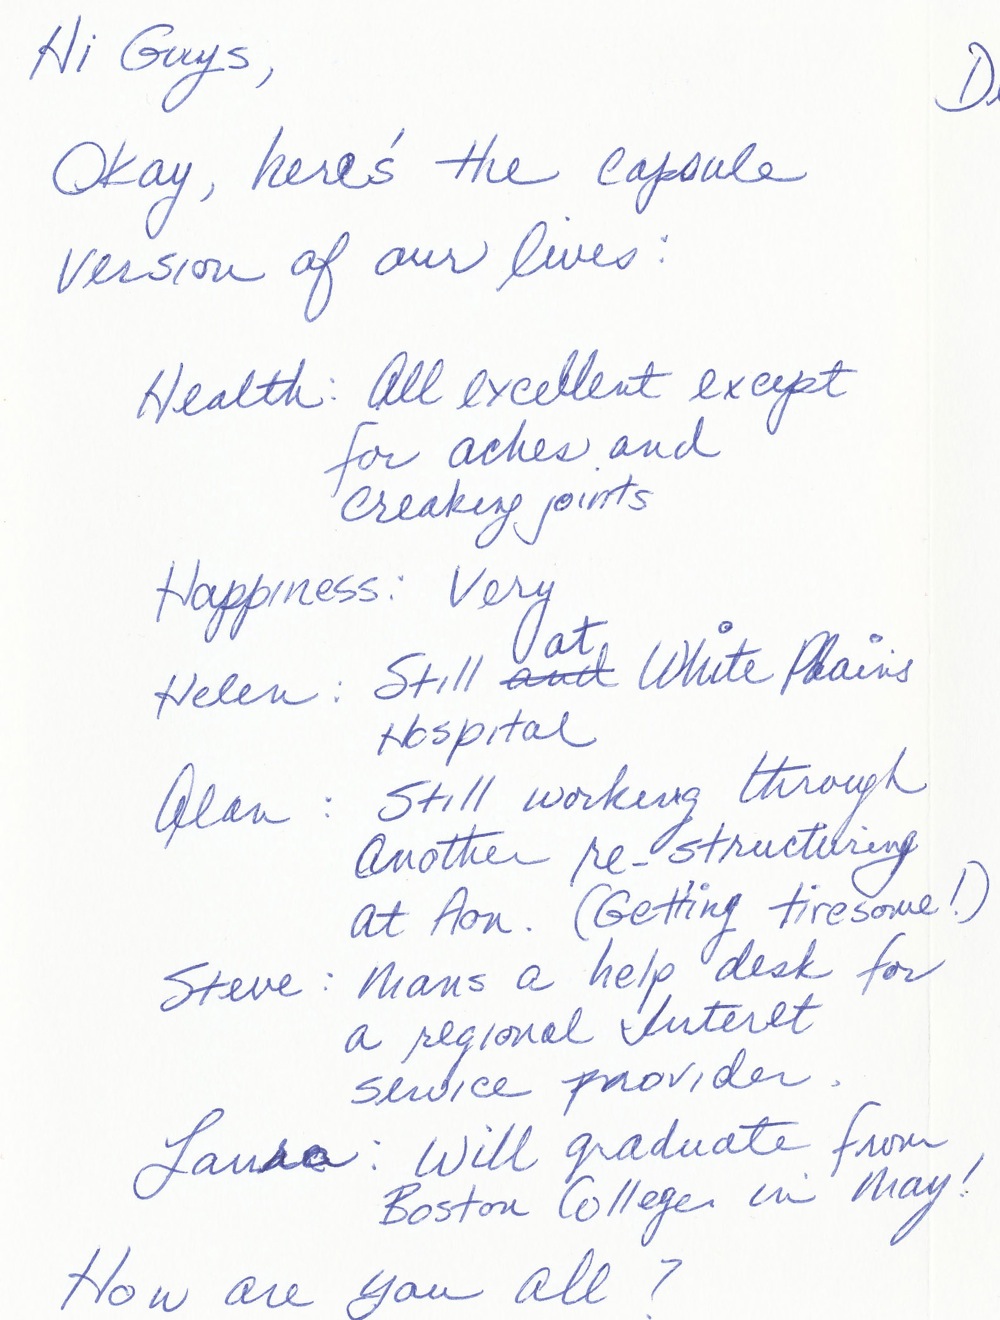 Hi Guys,
Okay, here's the capsule
version of our lives:
Health: All excellent except
for aches and
creaking joints
Happiness: Very
at
Helen: Still and White Plains
Hospital
Alan: Still working through
another re-structuring
at Aon. (Getting tiresome!)
Steve: Mans a help desk for
a regional Interet
service provider.
Laura: Will graduate from
Boston College in May!
How are you all?